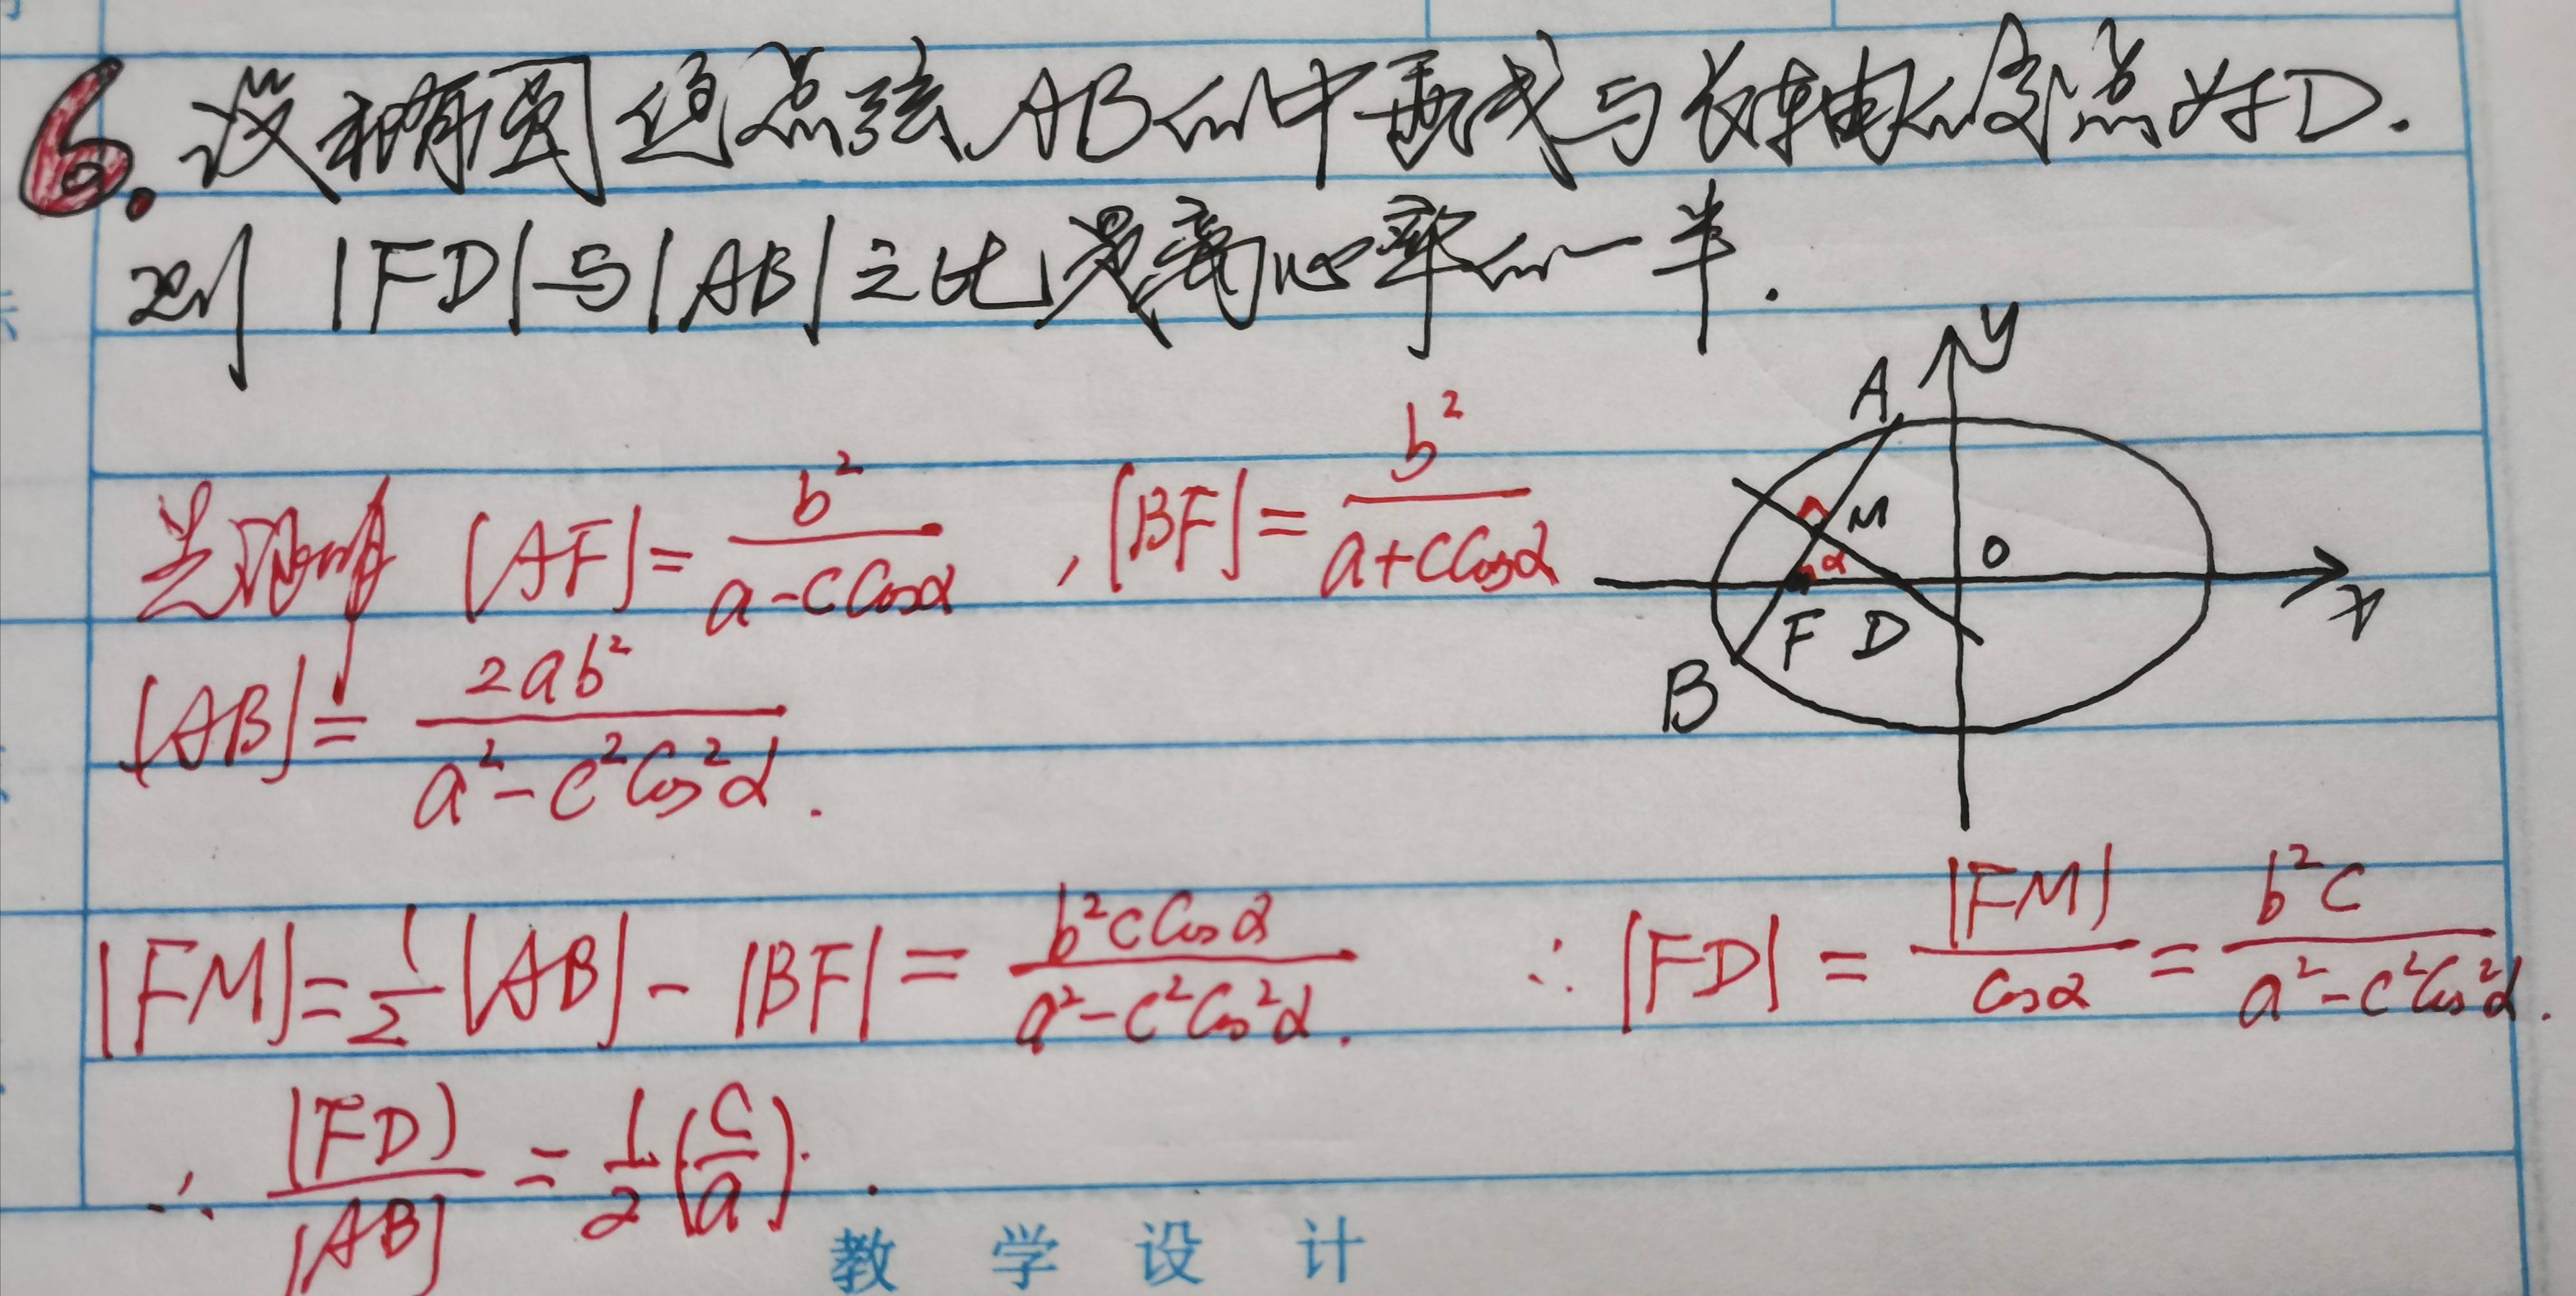 6. 设椭圆焦点弦AB的中垂线与长轴的交点为D.
则 |FD|与|AB|之比是离心率的一半.
|AF| = b²/(a-c cosα) , |BF| = b²/(a+c cosα)
|AB| = 2ab²/(a²-c²cos²α) .
y
A
M
α
O
x
F D
B
|FM| = 1/2 |AB| - |BF| = b²c cosα/(a²-c²cos²α) . ∴ |FD| = |FM|/cosα = b²c/(a²-c²cos²α) .
∴ |FD|/|AB| = 1/2 (c/a) .
教 学 设 计